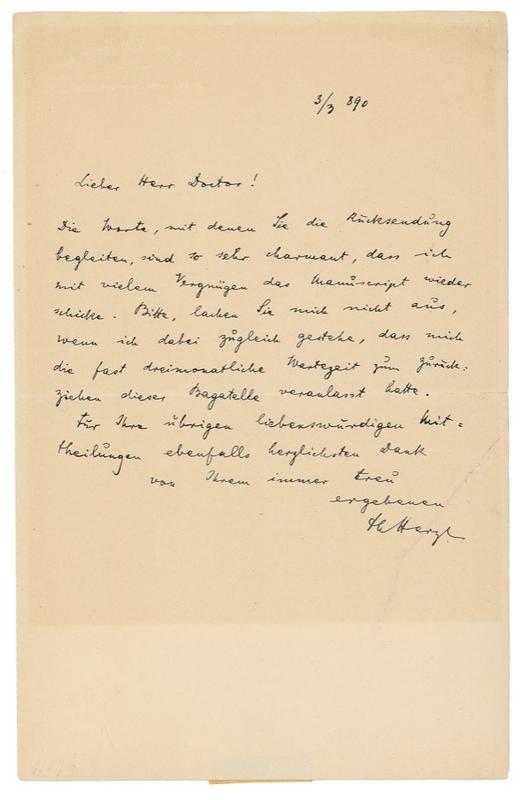 3/3 890
Lieber Herr Doctor!
Die Worte, mit denen Sie die Rücksendung
begleiten, sind so sehr charmant, dass ich
mit vielem Vergnügen das Manuscript wieder
schicke. Bitte, lachen Sie mich nicht aus,
wenn ich dabei zugleich gestehe, dass mich
die fast dreimonatliche Wartezeit zum Zurück:
ziehen dieser Bagatelle veranlasst hatte.
Für Ihre übrigen liebenswürdigen Mit=
theilungen ebenfalls herzlichsten Dank
von Ihrem immer treu
ergebenen
Th Herzl